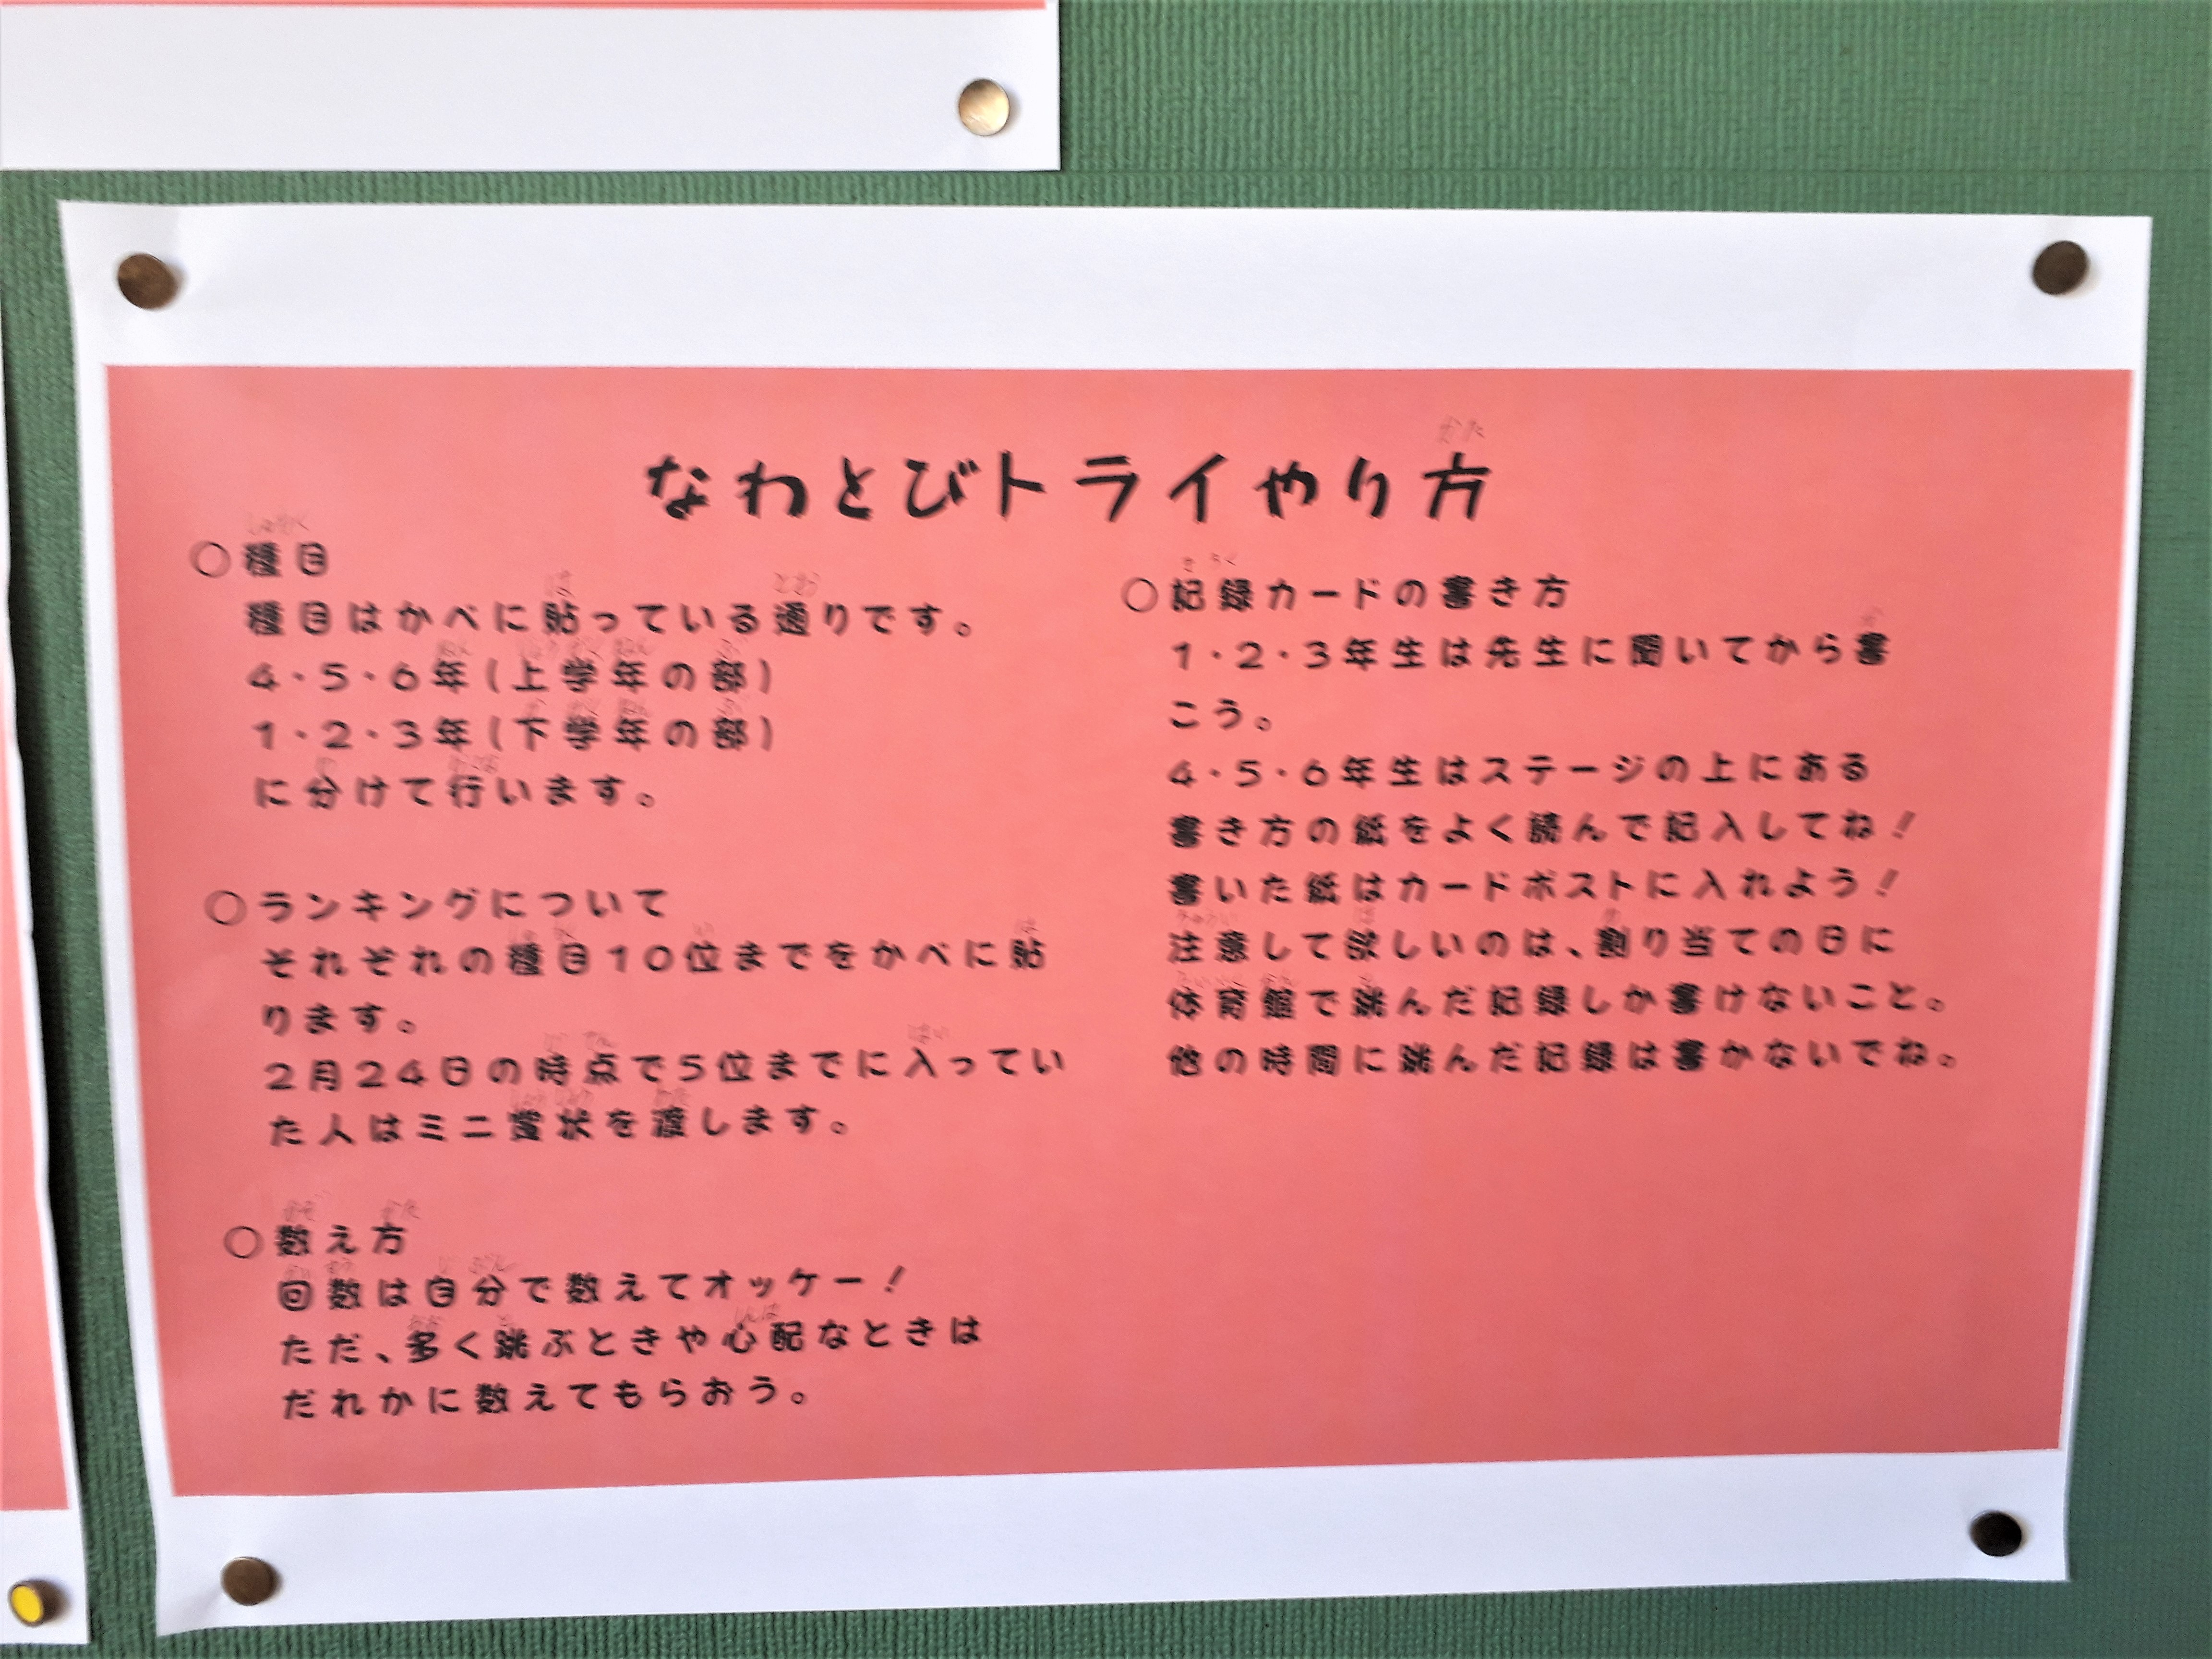 なわとびトライやり方
○種目
種目はかべに貼っている通りです。
4・5・6年(上学年の部)
1・2・3年(下学年の部)
に分けて行います。
○ランキングについて
それぞれの種目10位までをかべに貼
ります。
2月24日の時点で5位までに入ってい
た人はミニ賞状を渡します。
○数え方
回数は自分で数えてオッケー！
ただ、多く跳ぶときや心配なときは
だれかに数えてもらおう。
○記録カードの書き方
1・2・3年生は先生に聞いてから書
こう。
4・5・6年生はステージの上にある
書き方の紙をよく読んで記入してね！
書いた紙はカードポストに入れよう！
注意して欲しいのは、割り当ての日に
体育館で跳んだ記録しか書けないこと。
他の時間に跳んだ記録は書かないでね。